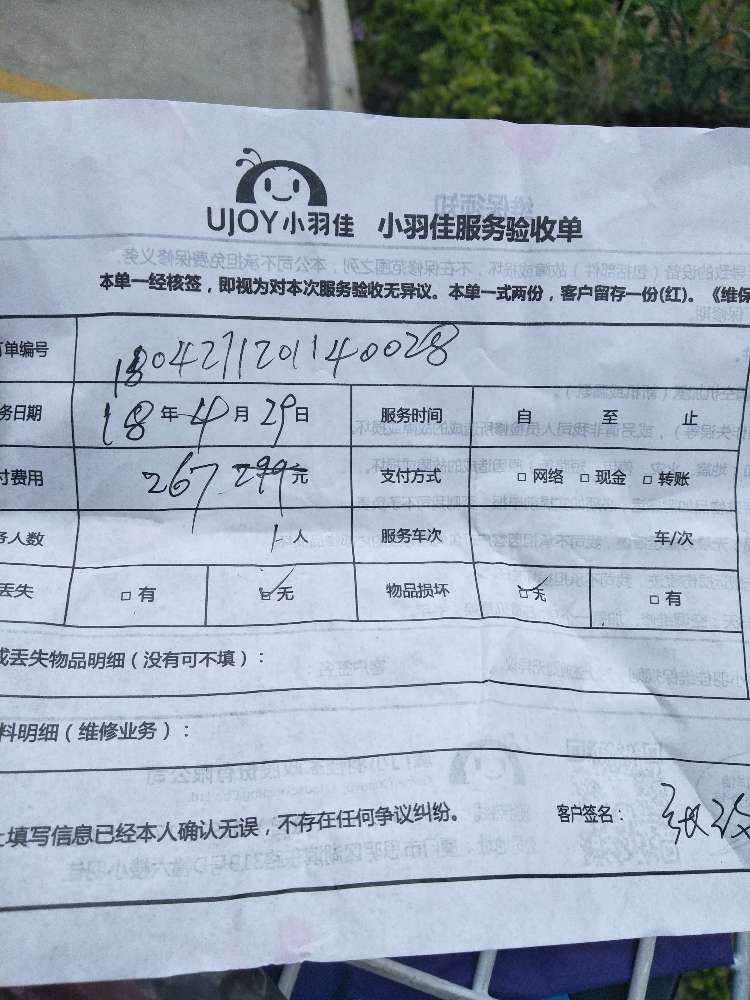 UJOY小羽佳 小羽佳服务验收单
本单一经核签，即视为对本次服务验收无异议。本单一式两份，客户留存一份(红)。《维保
单编号 180427120114 0028
务日期 18年4月29日 服务时间 自 至 止
付费用 267 299元 支付方式 □网络 □现金 □转账
务人数 1人 服务车次 车/次
丢失 □有 ☑无 物品损坏 ☑无 □有
或丢失物品明细（没有可不填）：
料明细（维修业务）：
上填写信息已经本人确认无误，不存在任何争议纠纷。 客户签名：